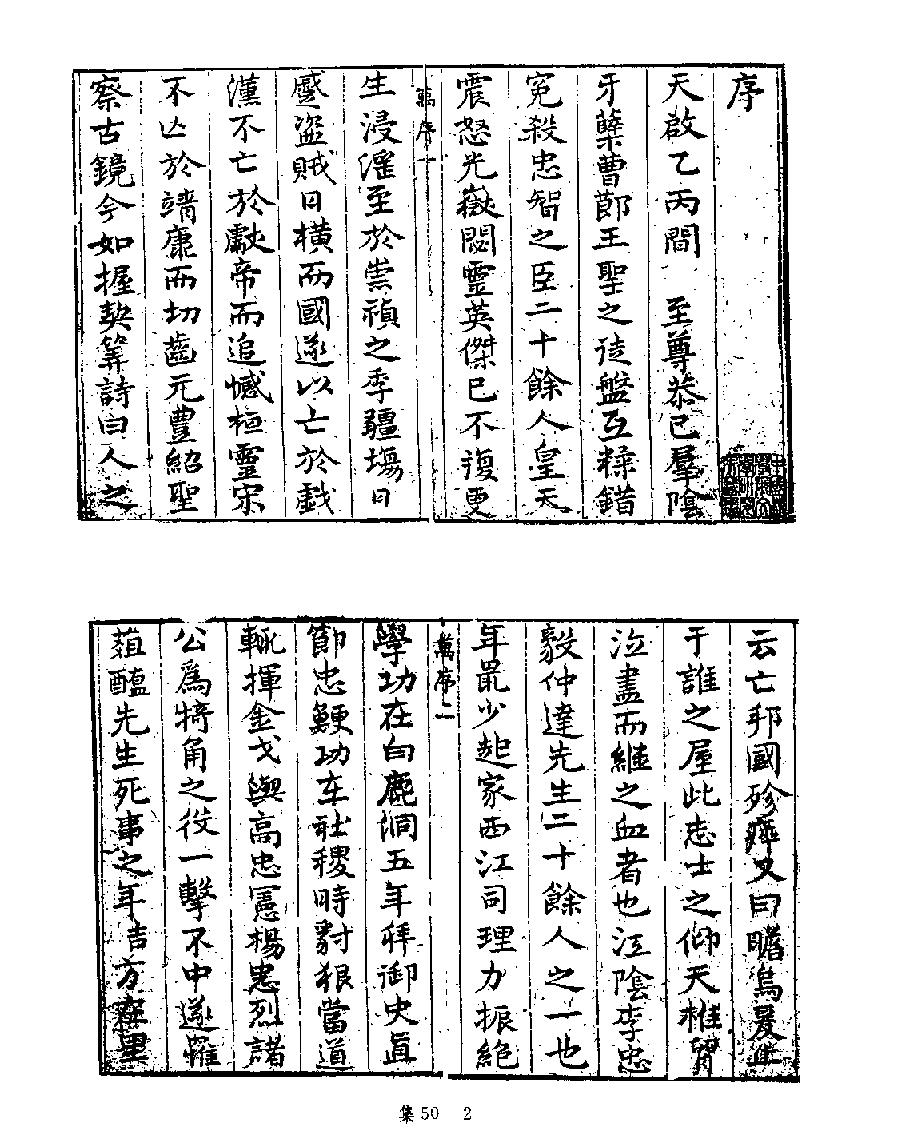 序
天啟乙丙間　至尊恭己羣陰
牙孽曹郎王聖之徒盤互糅錯
冤殺忠智之臣二十餘人皇天
震怒光嶽閟靈英傑已不復更
序一
生浸淫至於崇禎之季疆場日
蹙盜賊日橫而國遂以亡於戲
漢不亡於獻帝而追憾桓靈宋
不亾於靖康而切齒元豐紹聖
察古鏡今如握契筭詩曰人之
云亡邦國殄瘁又曰瞻烏爰止
于誰之屋此志士之仰天椎胷
泣盡而繼之血者也江陰李忠
毅仲達先生二十餘人之一也
年最少起家西江司理力振絕
萬序二
學功在白鹿洞五年拜御史直
節忠鯁功在社稷時豺狠當道
輒揮金戈與高忠憲楊忠烈諸
公為犄角之役一擊不中遂罹
葅醢先生死事之年吉方在星
集50　2